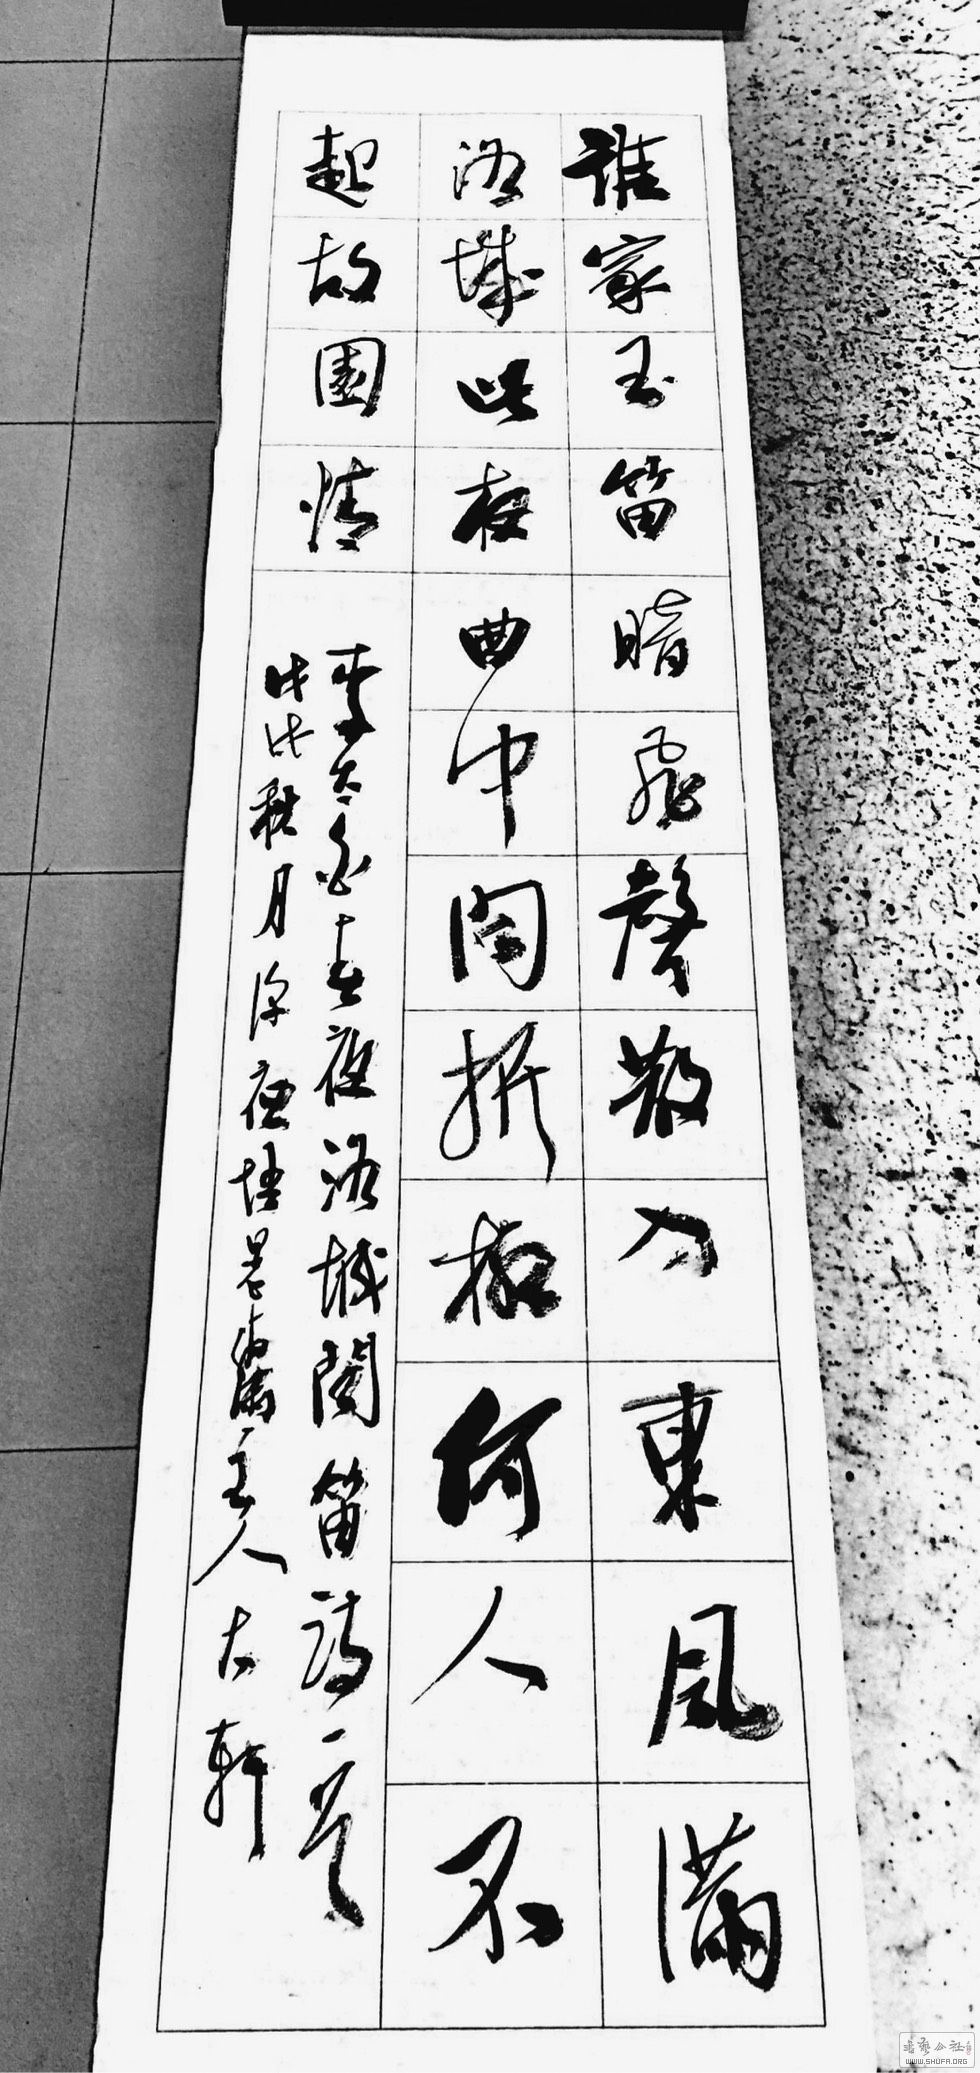 誰家玉笛暗飛聲散入東風滿
洛城此夜曲中聞折柳何人不
起故園情
李太白春夜洛城聞笛詩一首
戊戌秋月深夜主人古軒
書藝公社
WWW.SHUFA.ORG